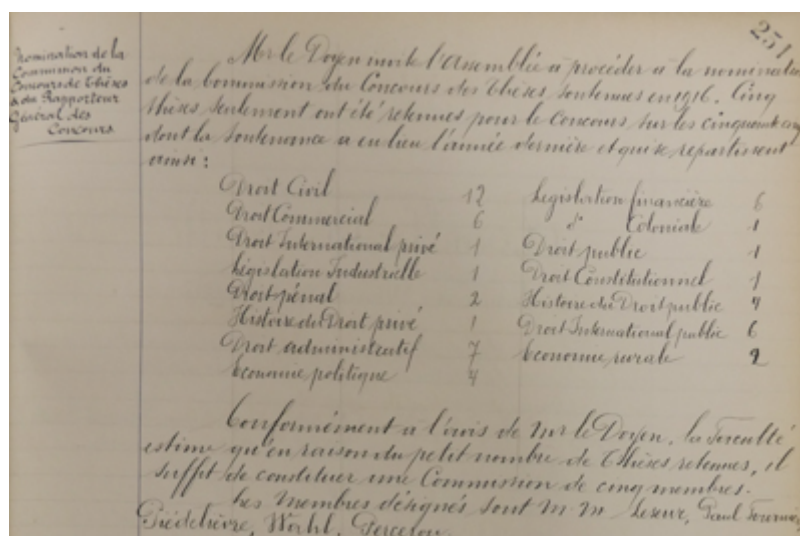 251
Nomination de la
Commission du
Concours de Thèses
& du Rapporteur
Général des
Concours
Mr le Doyen invite l'Assemblée à procéder à la nomination
de la Commission du Concours des Thèses soutenues en 1916. Cinq
thèses seulement ont été retenues pour le Concours sur les cinquante cinq
dont la soutenance a eu lieu l'année dernière et qui se repartissent
ainsi :
Droit Civil 12 Législation financière 6
Droit Commercial 6 d° Coloniale 1
Droit International privé 1 Droit public 1
Législation Industrielle 1 Droit Constitutionnel 1
Droit pénal 2 Histoire du Droit public 4
Histoire du Droit privé 1 Droit International public 6
Droit administratif 7 Economie rurale 2
Economie politique 4
Conformément à l'avis de Mr le Doyen, la Faculté
estime qu'en raison du petit nombre de Thèses retenues, il
suffit de constituer une Commission de cinq membres.
Les Membres désignés sont M.M. Leseur, Paul Fournier,
Piédelièvre, Wahl, Percerou.